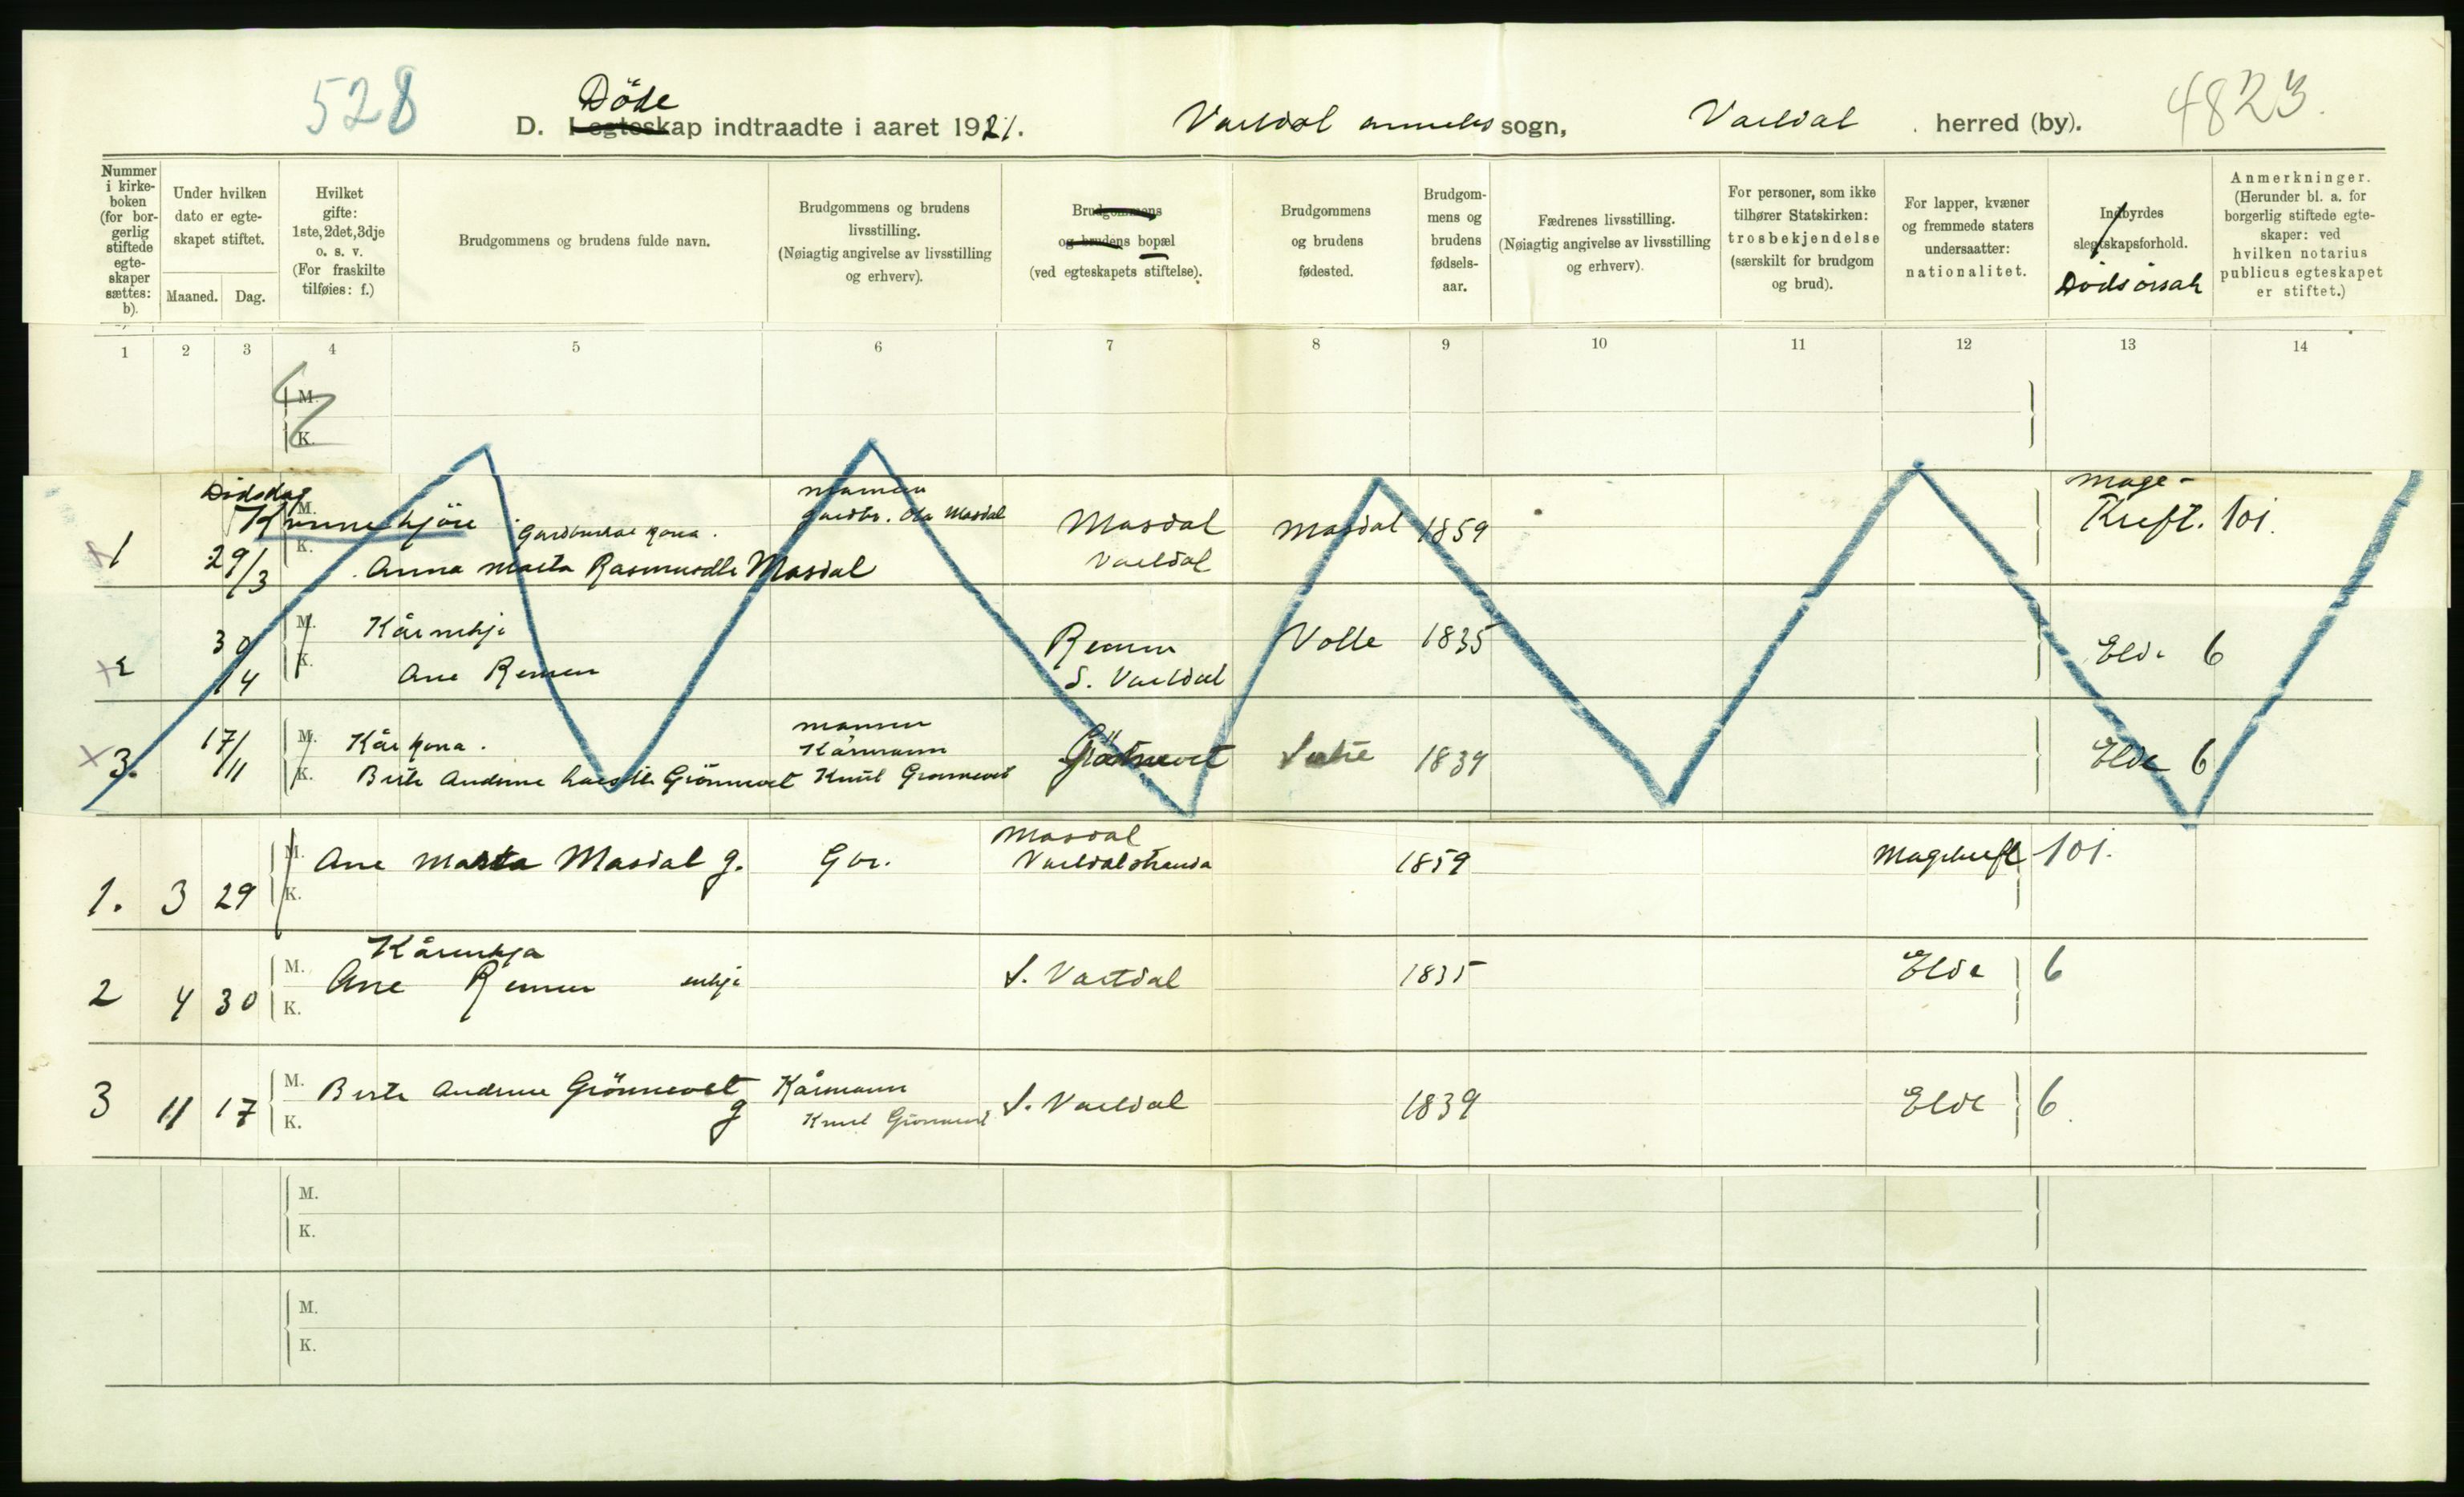 528
Döde
D. I egteskap indtraadte i aaret 1921. Vartdal anneks sogn, Vartdal herred (by). 4823.
Nummer i kirkeboken (for borgerlig stiftede egteskaper sættes: b).
Under hvilken dato er egteskapet stiftet.
Maaned. Dag.
Hvilket gifte: 1ste, 2det, 3dje o. s. v. (For fraskilte tilføies: f.)
Brudgommens og brudens fulde navn.
Brudgommens og brudens livsstilling. (Nøiagtig angivelse av livsstilling og erhverv).
Brudgommens og brudens bopæl (ved egteskapets stiftelse).
Brudgommens og brudens fødested.
Brudgommens og brudens fødselsaar.
Fædrenes livsstilling. (Nøiagtig angivelse av livsstilling og erhverv).
For personer, som ikke tilhører Statskirken: trosbekjendelse (særskilt for brudgom og brud).
For lapper, kvæner og fremmede staters undersaatter: nationalitet.
Indbyrdes slegtskapsforhold.
Dödsörsak
Anmerkninger. (Herunder bl. a. for borgerlig stiftede egteskaper: ved hvilken notarius publicus egteskapet er stiftet.)
1 2 3 4 5 6 7 8 9 10 11 12 13 14
M.
K.
Dödsdag M. mannen Mage-
Kvinnekjön Gardbrukar kona. gardbr. Ola Masdal Masdal Masdal 1859 Kreft. 101.
1 29/3 K. Anna Marta Rasmusdtr Masdal Vartdal
2 30/4 M. Kårenkje Remen Volle 1835 Elde 6
K. Ane Remen S. Vartdal
3. 17/11 M. Kårkona. mannen Kårmann Grönnevet Sætre 1839 Elde 6
K. Birte Andrine Larsdtr Grönnevet Knut Grönnevet
M. Ane Marta Masdal g. Gbr. Masdal Vartdalstranda 1859 Magekreft 101.
1. 3 29 K.
Kårenkja
M. Ane Remen enkje S. Vartdal 1835 Elde 6
2 4 30 K.
M. Birte Andrine Grönnevet g Kårmann Knut Grönnevet S. Vartdal 1839 Elde 6.
3 11 17 K.
M.
K.
M.
K.